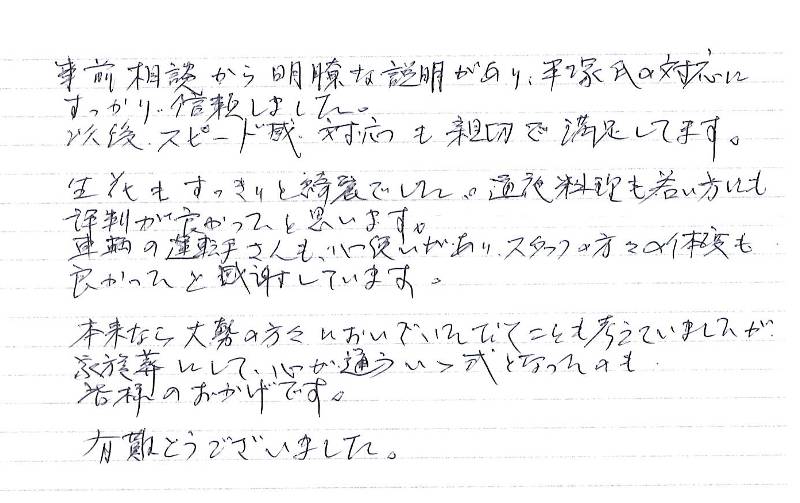 事前相談から明瞭な説明があり、平塚氏の対応に
すっかり信頼しました。
以後、スピード感、対応も親切で満足してます。
生花もすっきりと綺麗でした。通夜料理も若い方にも
評判が良かったと思います。
車輌の運転手さんも、心使いがあり、スタッフの方々の体度も
良かったと感謝しています。
本来なら大勢の方々においでいただくことも考えていましたが
家族葬にして、心が通ういい式となったのも
皆様のおかげです。
有難とうございました。